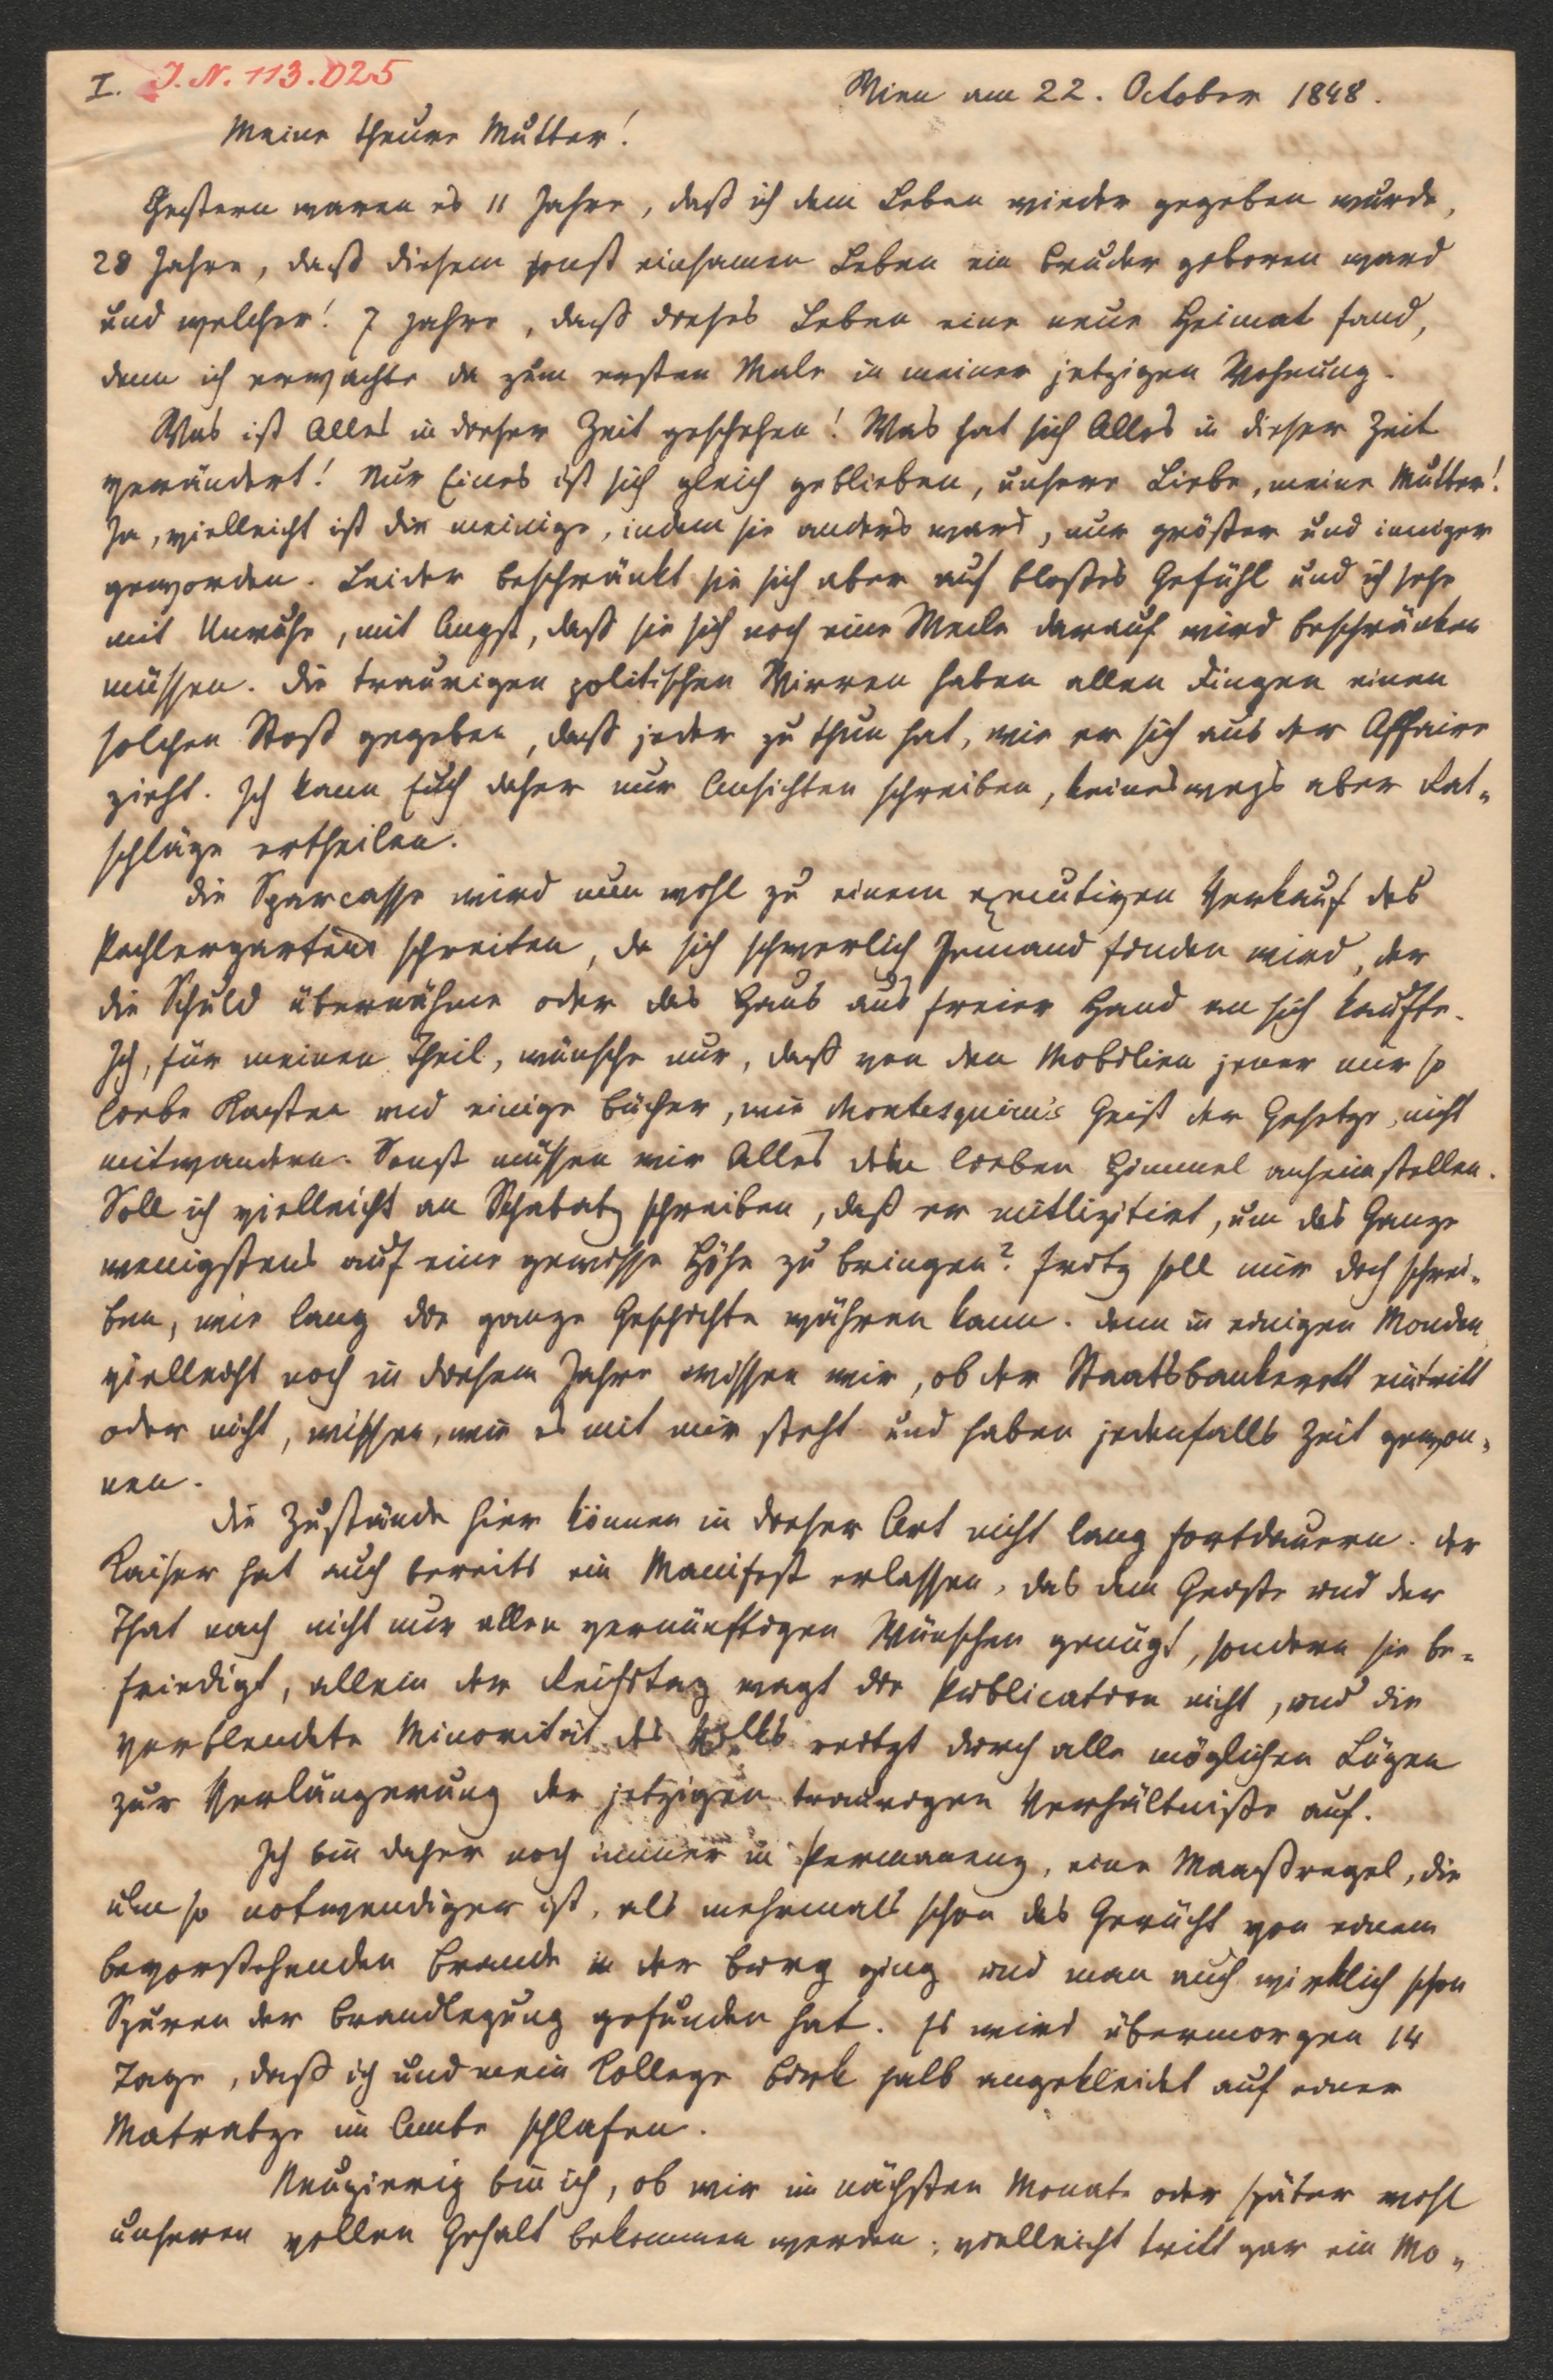 I. J. N. 113.025
Wien am 22. October 1848.
Meine theure Mutter!
Gestern waren es 11 Jahre, daß ich dem Leben wieder gegeben wurde,
28 Jahre, daß diesem sonst einsamen Leben ein Bruder geboren ward
und welcher! 7 Jahre, daß dieses Leben eine neue Heimat fand,
denn ich erwachte da zum ersten Male in meiner jetzigen Wohnung.
Was ist Alles in dieser Zeit geschehen! Was hat sich Alles in dieser Zeit
verändert! Nur Eines ist sich gleich geblieben, unsere Liebe, meine Mutter!
Ja, vielleicht ist die meinige, indem sie anders ward, nur größer und inniger
geworden. Leider beschränkt sie sich aber auf bloßes Gefühl und ich sehe
mit Unruhe, mit Angst, daß sie sich noch eine Weile darauf wird beschränken
müssen. Die traurigen politischen Wirren haben allen Dingen einen
solchen Stoß gegeben, daß jeder zu thun hat, wie er sich aus der Affaire
zieht. Ich kann Euch daher nur Ansichten schreiben, keineswegs aber Rat-
schläge ertheilen.
Die Sparcasse wird nun wohl zu einem executiven Verkauf des
Pachlergartens schreiten, da sich schwerlich Jemand finden wird, der
die Schuld übernähme oder das Haus aus freier Hand an sich kaufte.
Ich, für meinen Theil, wünsche nur, daß von den Mobilien jener mir so
liebe Kasten und einige Bücher, wie Montesquieu's Geist der Gesetze, nicht
mitwandern. Sonst müssen wir Alles dem lieben Himmel anheimstellen.
Soll ich vielleicht an Schabatz schreiben, daß er mitlizitirt, um das Ganze
wenigstens auf eine gewisse Höhe zu bringen? Fritz soll mir doch schrei-
ben, wie lang die ganze Geschichte währen kann. Denn in einigen Monden
vielleicht noch in diesem Jahre wissen wir, ob der Staatsbankerott eintritt
oder nicht, wissen, wie es mit mir steht und haben jedenfalls Zeit gewon-
nen.
Die Zustände hier können in dieser Art nicht lang fortdauern. Der
Kaiser hat auch bereits ein Manifest erlassen, das dem Geiste und der
That nach nicht nur allen vernünftigen Wünschen genügt, sondern sie be-
friedigt, allein der Reichstag wagt die Publication nicht, und die
verblendete Minorität des Volks reitzt durch alle möglichen Lügen
zur Verlängerung der jetzigen traurigen Verhältniße auf.
Ich bin daher noch immer in Permanenz, eine Maaßregel, die
um so notwendiger ist, als mehrmals schon das Gerücht von einem
bevorstehenden Brande in der Burg ging und man auch wirklich schon
Spuren der Brandlegung gefunden hat. Es wird übermorgen 14
Tage, daß ich und mein College Birk halb angekleidet auf einer
Matratze im Amte schlafen.
Neugierig bin ich, ob wir im nächsten Monate oder später wohl
unseren vollen Gehalt bekommen werden; vielleicht tritt gar ein Mo-